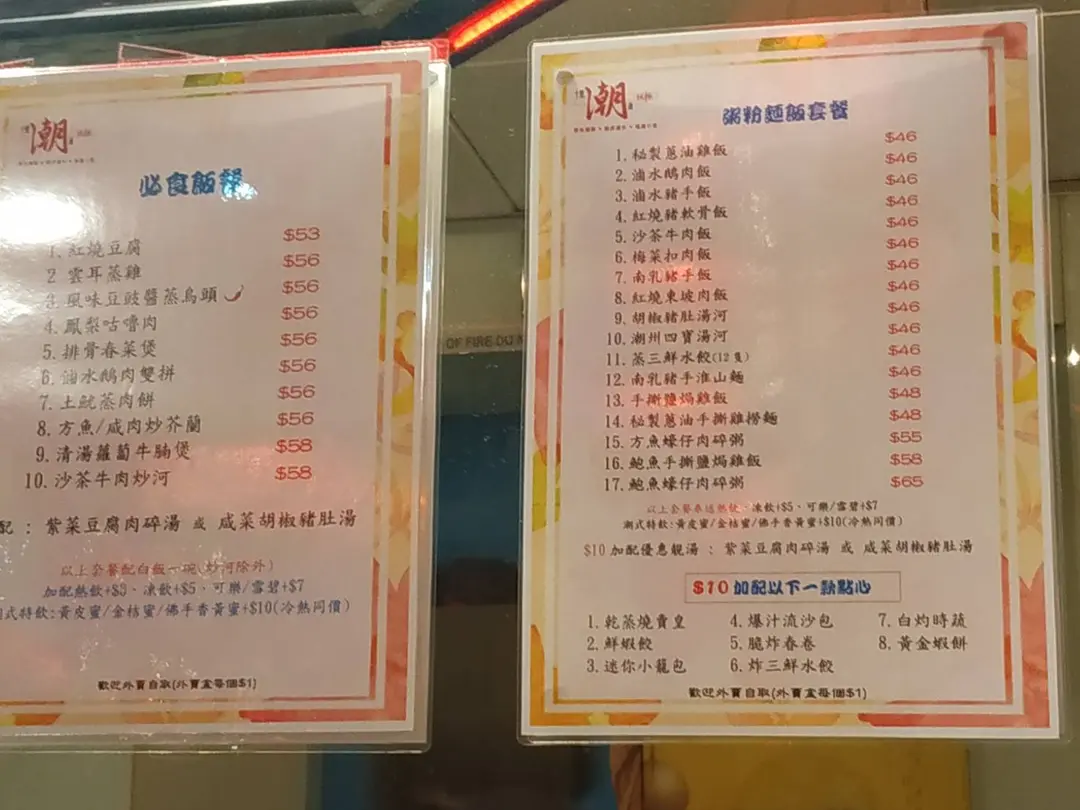 潮
必食飯餐
1. 紅燒豆腐 $53
2 雲耳蒸雞 $56
3. 風味豆豉醬蒸烏頭 $56
4. 鳳梨咕嚕肉 $56
5. 排骨春菜煲 $56
6. 滷水鵝肉雙拼 $56
7. 土魷蒸肉餅 $56
8. 方魚/咸肉炒芥蘭 $56
9. 清湯蘿蔔牛腩煲 $58
10. 沙茶牛肉炒河 $58
配 : 紫菜豆腐肉碎湯 或 咸菜胡椒豬肚湯
以上套餐配白飯一碗(炒河除外)
加配熱飲+$3、凍飲+$5、可樂/雪碧+$7
式特飲:黃皮蜜/金桔蜜/佛手香黃蜜+$10(冷熱同價)
歡迎外賣自取(外賣盒每個$1)
潮
粥粉麵飯套餐
1. 秘製蔥油雞飯 $46
2. 滷水鵝肉飯 $46
3. 滷水豬手飯 $46
4. 紅燒豬軟骨飯 $46
5. 沙茶牛肉飯 $46
6. 梅菜扣肉飯 $46
7. 南乳豬手飯 $46
8. 紅燒東坡肉飯 $46
9. 胡椒豬肚湯河 $46
10. 潮州四寶湯河 $46
11. 蒸三鮮水餃(12隻) $46
12. 南乳豬手淮山麵 $46
13. 手撕鹽焗雞飯 $48
14. 秘製蔥油手撕雞撈麵 $48
15. 方魚蠔仔肉碎粥 $55
16. 鮑魚手撕鹽焗雞飯 $58
17. 鮑魚蠔仔肉碎粥 $65
以上套餐奉送熱飲、凍飲+$5、可樂/雪碧+$7
潮式特飲:黃皮蜜/金桔蜜/佛手香黃蜜+$10(冷熱同價)
$10 加配優惠靚湯 : 紫菜豆腐肉碎湯 或 咸菜胡椒豬肚湯
$10 加配以下一款點心
1. 乾蒸燒賣皇 4. 爆汁流沙包 7. 白灼時蔬
2. 鮮蝦餃 5. 脆炸春卷 8. 黃金蝦餅
3. 迷你小籠包 6. 炸三鮮水餃
歡迎外賣自取(外賣盒每個$1)
OF FIRE DO N